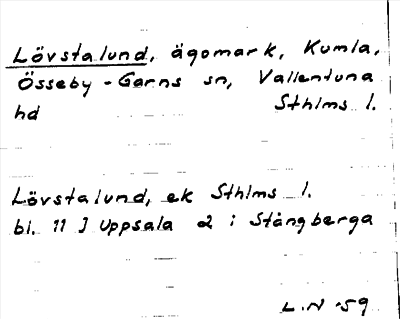 Lövstalund, ägomark, Kumla,
Össeby-Garns sn, Vallentuna
hd Sthlms l.
Lövstalund, ek Sthlms l.
bl. 11 J Uppsala 2 i Stångberga
L.N -59